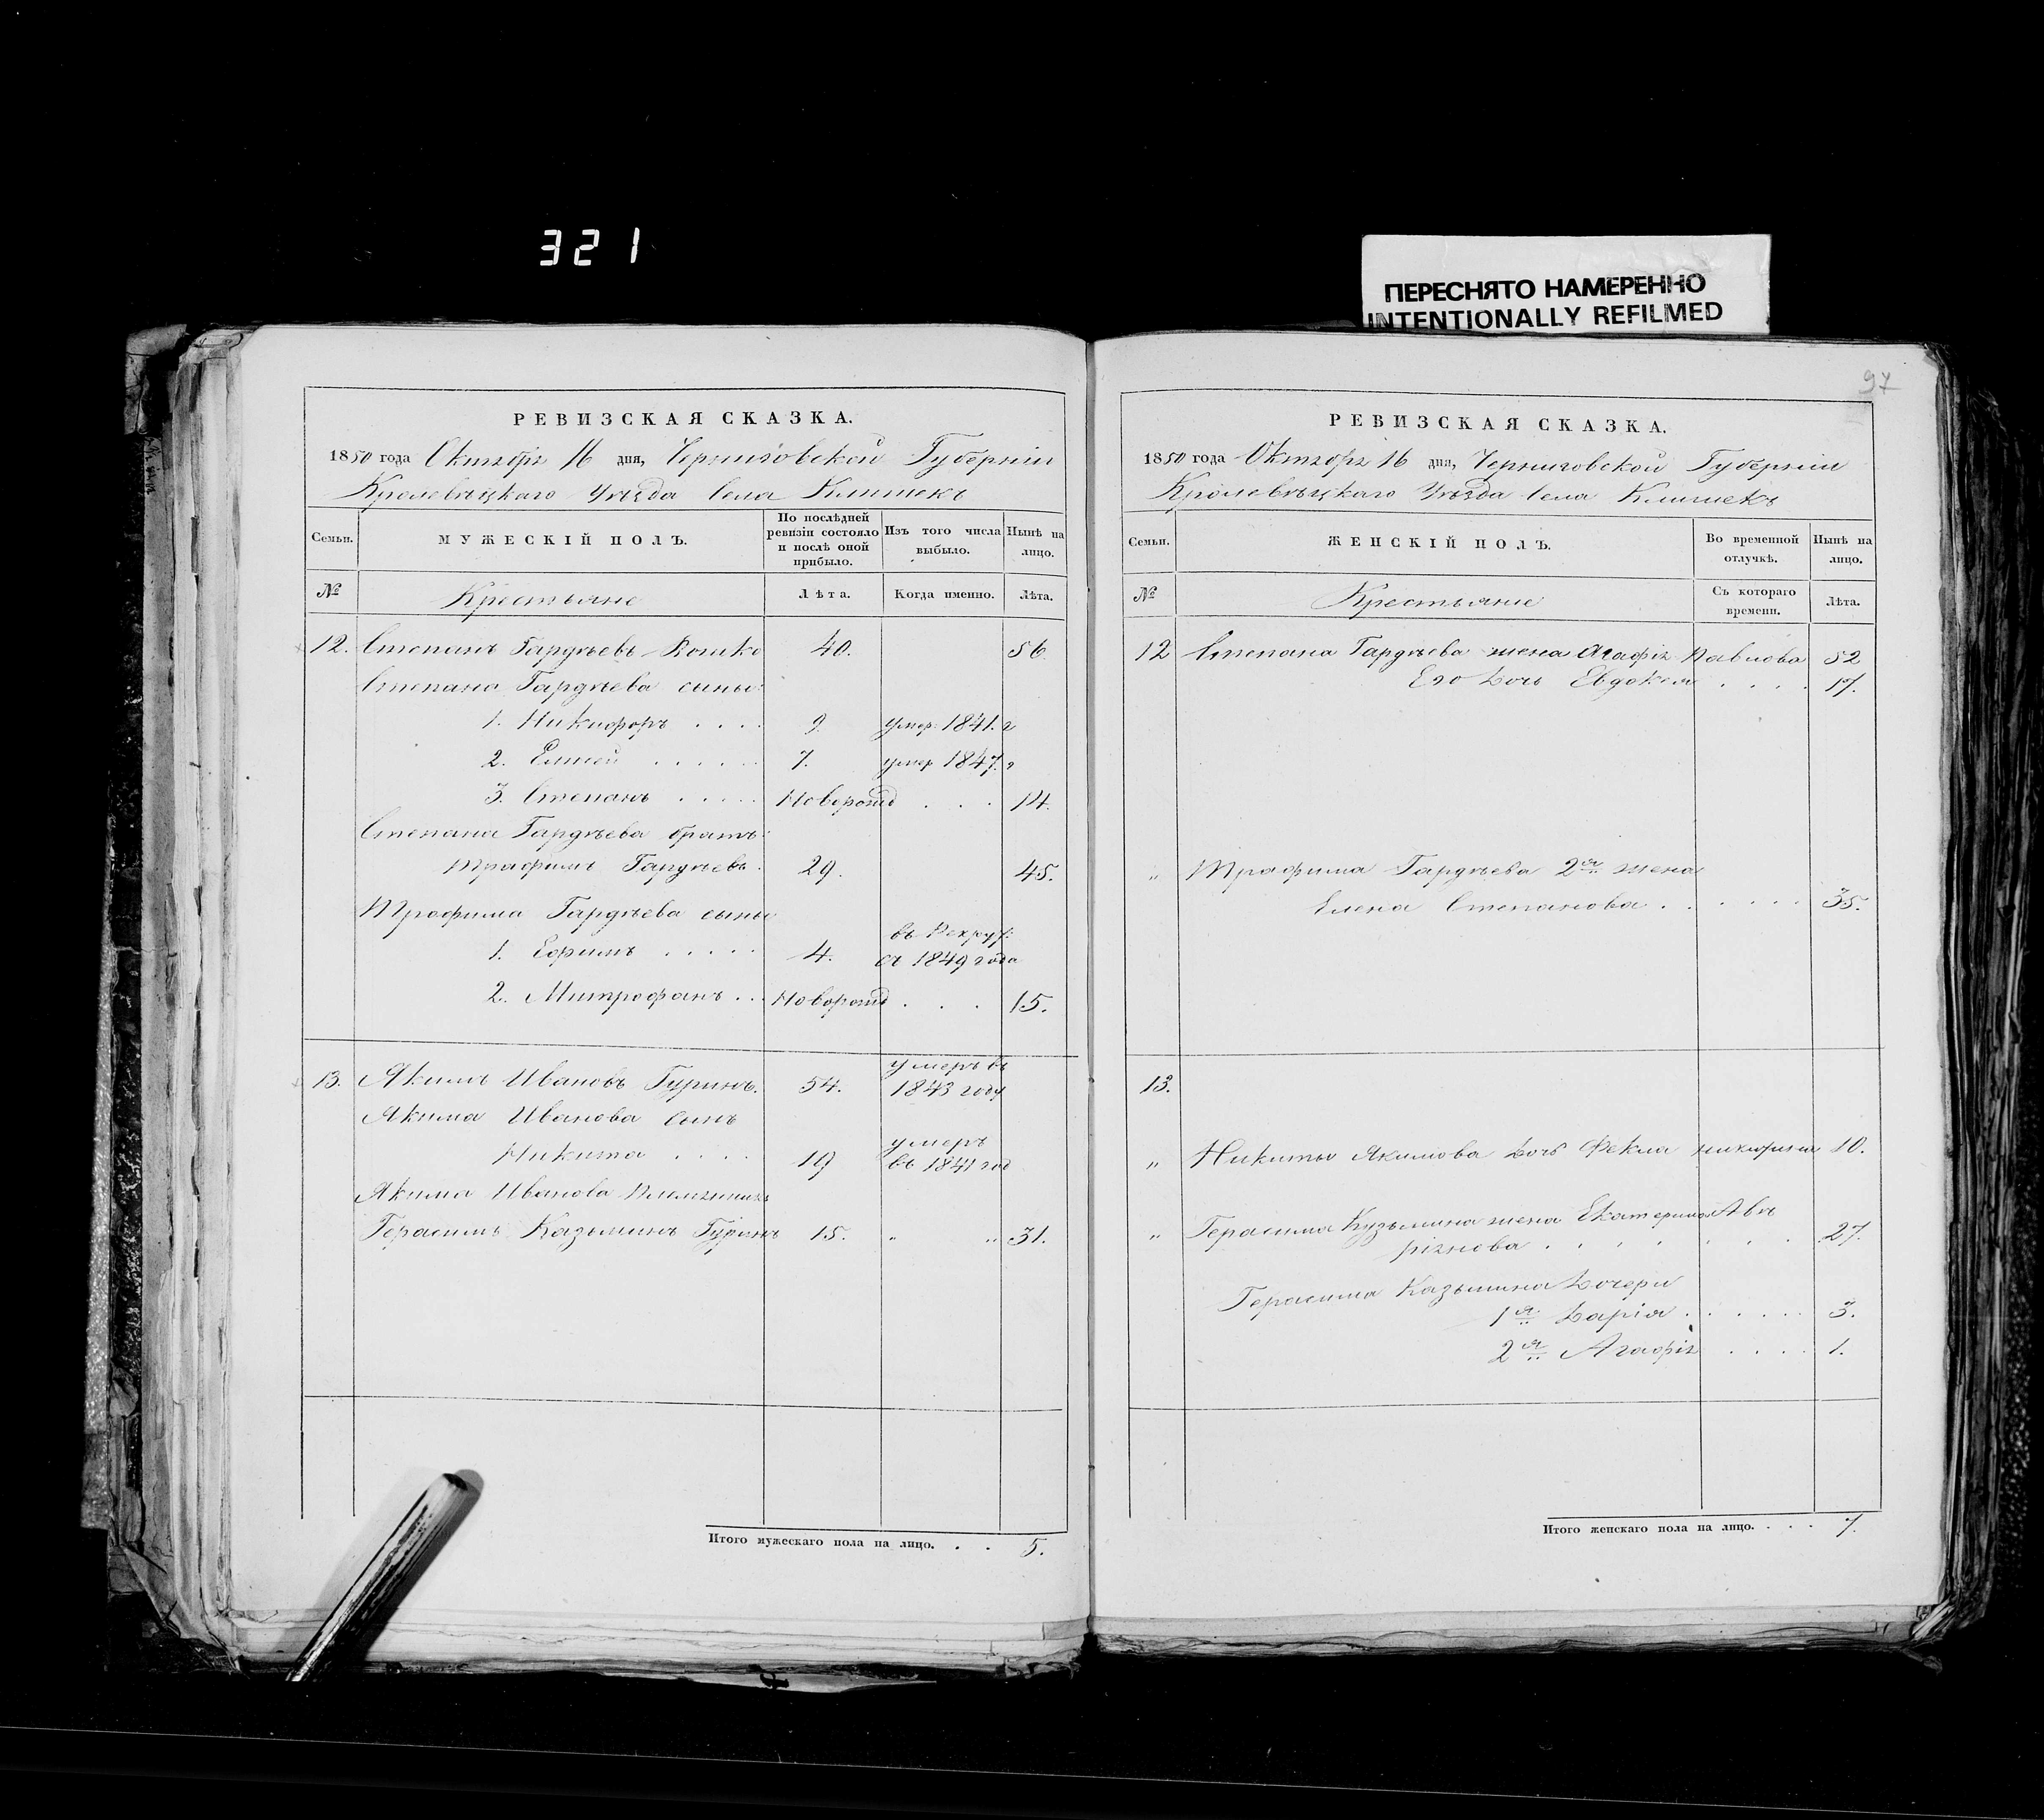 321
ПЕРЕСНЯТО НАМЕРЕННО
INTENTIONALLY REFILMED
РЕВИЗСКАЯ СКАЗКА.
1850 года Октября 16 дня, Черниговской Губерніи
Кролевецкаго Уѣзда Села Клишекъ
Семьи.
МУЖЕСКІЙ ПОЛЪ.
По послѣдней ревизіи состояло и послѣ оной прибыло.
Изъ того числа выбыло.
Нынѣ на лицо.
№ Крестьяне Лѣта. Когда именно. Лѣта.
12. Степанъ Гордѣевъ 40. 56
Степана Гордѣева сыны:
1. Никифоръ . . . . 9. умер. 1841. г
2. Елисей . . . . . . 7. умер 1847. г
3. Степанъ . . . . . Новорожд . . . 14.
Степана Гордѣева братъ:
Трофимъ Гордѣевъ. 29. 45.
Трофима Гордѣева сыны
1. Ефимъ . . . . . 4. въ Рекрут:
съ 1849 года
2. Митрофанъ . . Новорожд . . . 15.
13. Якимъ Ивановъ Гуринъ. 54. умеръ въ
1843 году
Якима Иванова сынъ
Никита . . . . 19 умеръ
въ 1841 год
Якима Иванова Племянникъ
Герасимъ Казьминъ Гуринъ 15. " " 31.
Итого мужескаго пола на лицо. . . 5.
97
РЕВИЗСКАЯ СКАЗКА.
1850 года Октября 16 дня, Черниговской Губерніи
Кролевецкаго Уѣзда Села Клишекъ
Семьи.
ЖЕНСКІЙ ПОЛЪ.
Во временной отлучкѣ.
Нынѣ на лицо.
№ Крестьяне Съ котораго времени. Лѣта.
12 Степана Гордѣева жена Агафія Павлова 52
Его дочь Евдокея . . . . 17.
" Трофима Гордѣева 2я жена
Елена Степанова . . . . . . 35.
13.
" Никиты Якимова дочь Фекла 10.
" Герасима Кузьмина жена Екатерина Ав
ріянова . . . . . . . 27.
Герасима Казьмина дочери
1я Дарія . . . . . . 3.
2я Агафія . . . . 1.
Итого женскаго пола на лицо. . . . 7.